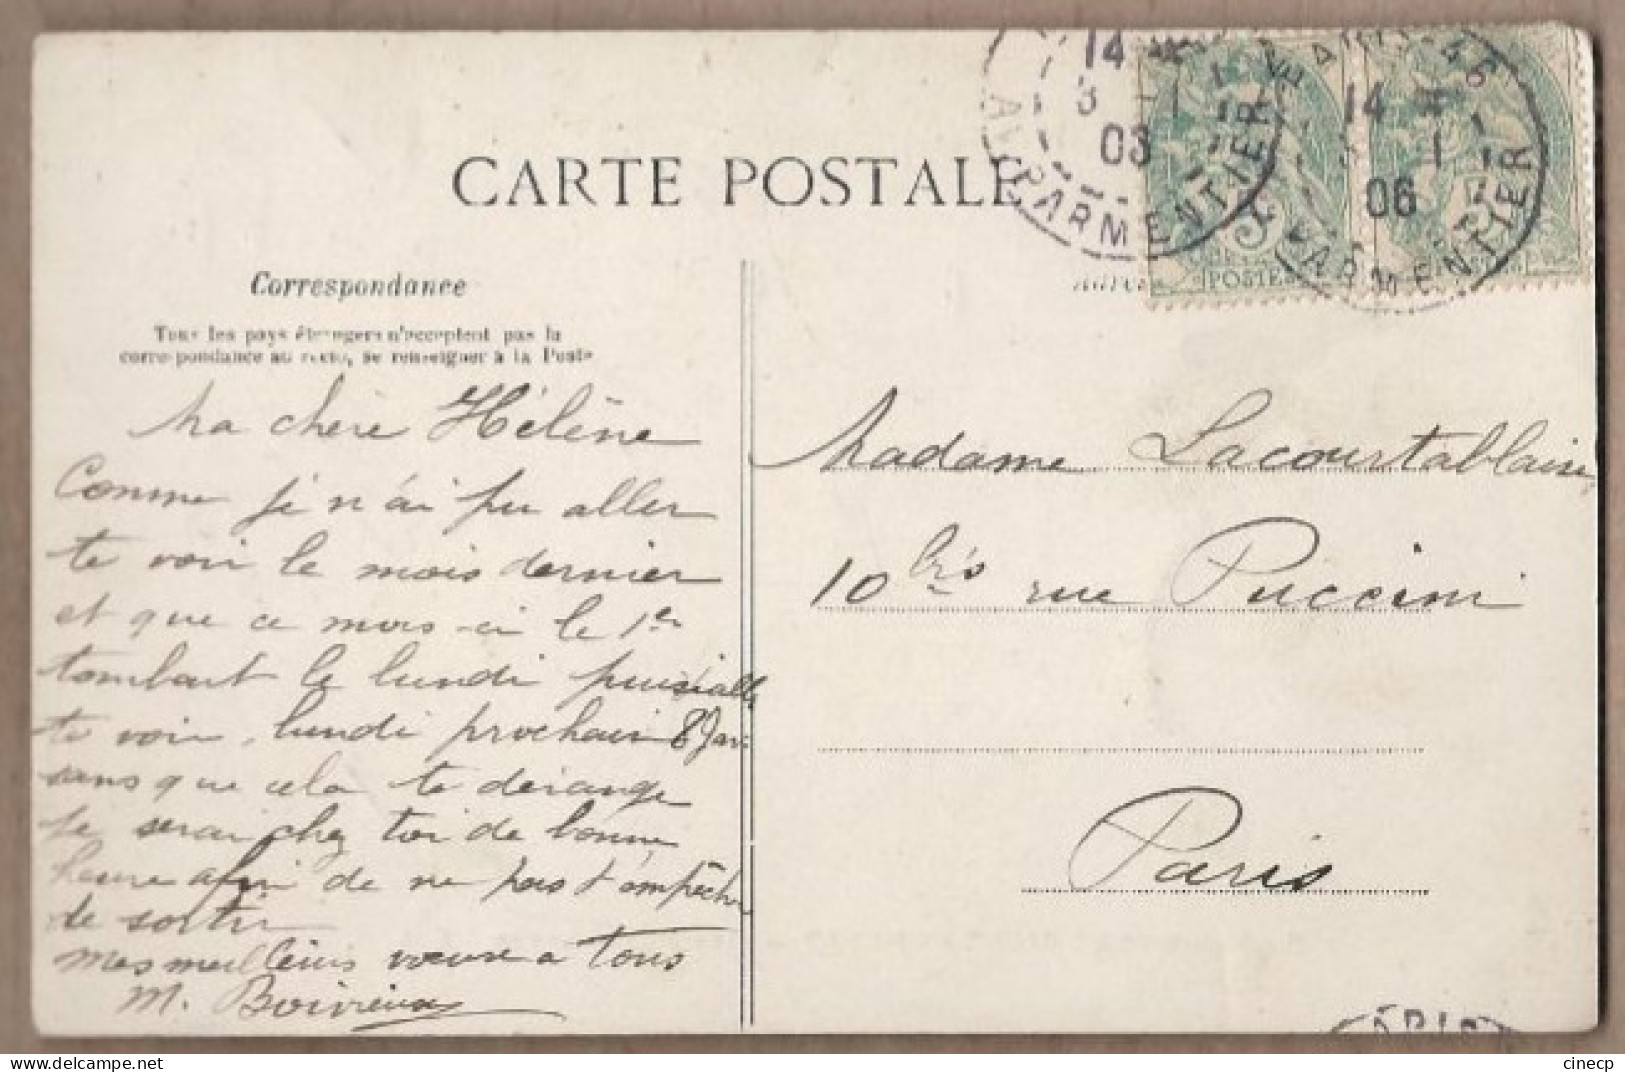 CARTE POSTALE
Correspondance
Tous les pays étrangers n'acceptent pas la
correspondance au recto, se renseigner à la Poste
Ma chère Hélène
Comme je n'ai pu aller
te voir le mois dernier
et que ce mois-ci le 1er
tombait le lundi puis-je aller
te voir, lundi prochain 8 Janv
sans que cela te dérange
Je serai chez toi de bonne
heure afin de ne pas t'empêcher
de sortir
Mes meilleurs voeux a tous
M.
14
3 1
03
AV. PARMENTIER
14
1
06
PARMENTIER
46
5
POSTES
5
Madame Lacourtablaise
10 bis rue Puccini
Paris
PARIS
cinecp